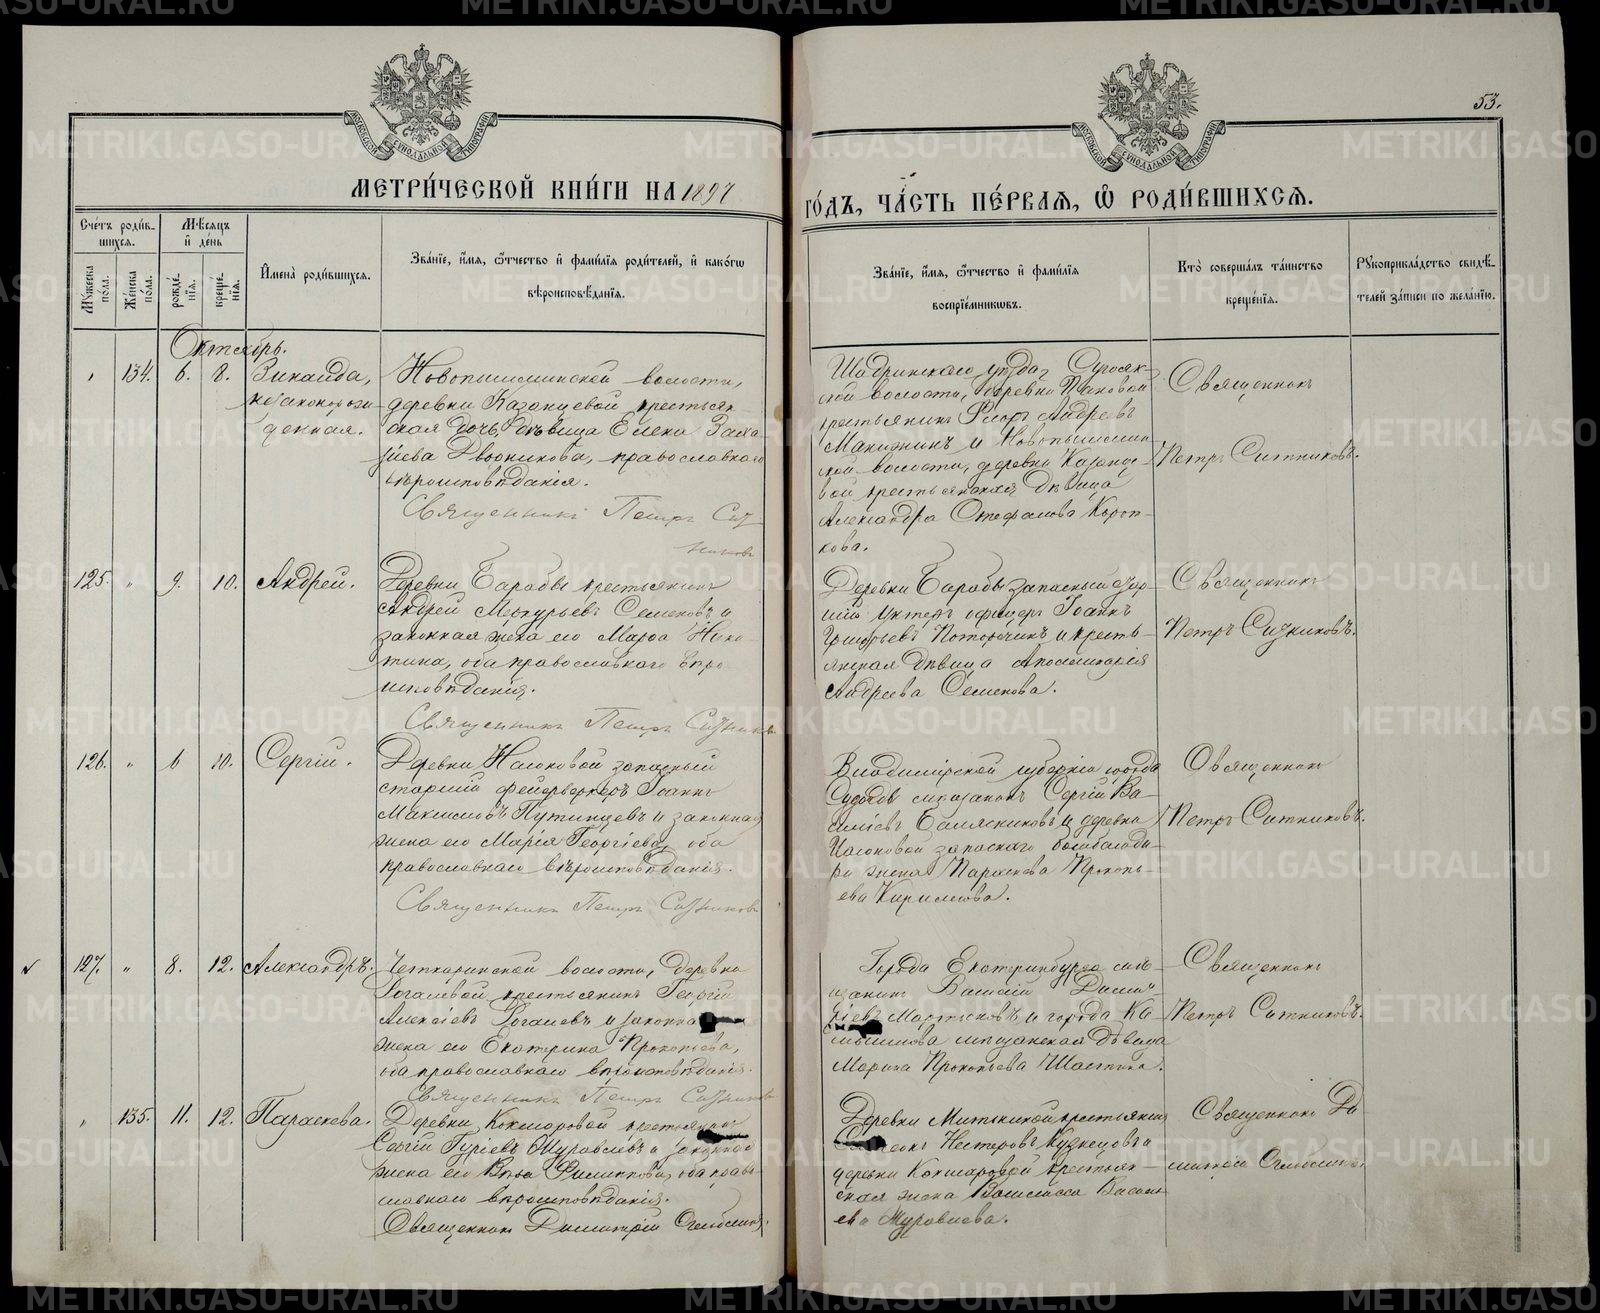 53.
МЕТРИ́ЧЕСКОЙ КНИ́ГИ НА 1897 ГО́ДЪ, ЧА́СТЬ ПЕ́РВАЯ, Ѡ РОДИ́ВШИХСЯ.
Сче́тъ роди́в-
шихся.
Му́жеска по́ла.
Же́нска по́ла.
Мѣ́сяцъ и҆ де́нь
рожде́-
нїѧ.
креще́-
нїѧ.
И҆мена̀ роди́вшихся.
Зва́нїе, и҆́мя, ѻ҆́тчество и҆ фами́лїя роди́телей, и҆ како́гѡ
вѣроисповѣ́данїя.
Зва́нїе, и҆́мя, ѻ҆́тчество и҆ фами́лїя
воспрїе́мникѡвъ.
Кто̀ соверша́лъ та́инство
креще́нїя.
Рукоприкла́дство свидѣ́-
телей за́писи по жела́нїю.
Октябрь.
134. 6. 8. Зинаида,
незаконорож-
денная.
Новопышминской волости,
деревни Казанцевой крестьян-
ская дочь, дѣвица Елена Заха-
ріева Дворникова, православнаго
вѣроисповѣданія.
Священникъ Петръ Сит-
никовъ
Шадринскаго уѣзда,
ской волости, деревни
крестьянинъ Андреевъ
и Новопышмин-
ской волости, деревни Казанце-
вой крестьянская дѣвица
Александра Стефанова Короп-
кова.
Священникъ
Петръ Ситниковъ.
125. " 9. 10. Андрей.
Деревни Барабы крестьянинъ
Андрей Меркурьевъ Семеновъ и
законная жена его Марѳа Ники-
тина, оба православнаго вѣро-
исповѣданія.
Священникъ Петръ Ситниковъ
Деревни Барабы запасный стар-
шій унтеръ офицеръ Іоаннъ
Григорьевъ и кресть-
янская дѣвица Аполлинарія
Андреева Семенова.
Священникъ
Петръ Ситниковъ.
126. " 6 10. Сергій.
Деревни запасный
старшій фейерверкеръ Іоаннъ
Максимовъ Путинцевъ и законная
жена его Марія Георгіева, оба
православнаго вѣроисповѣданія.
Священникъ Петръ Ситниковъ
Владимірской губерніи города
мѣщанинъ Сергій Ва-
силіевъ и деревни
запаснаго
жена Параскева Прокопь-
ева Кириллова.
Священникъ
Петръ Ситниковъ.
127. " 8. 12. Александръ.
Четкаринской волости, деревни
Рогалевой крестьянинъ Георгій
Алексіевъ Рогалевъ и законна
жена его Екатерина Прокопьева,
оба православнаго вѣроисповѣданія.
Священникъ Петръ Ситниковъ
Города Екатеринбурга мѣ-
щанинъ Василій Димит-
ріевъ Мартыновъ и города Ка-
мышлова мѣщанская дѣвица
Марина Прокопьева
Священникъ
Петръ Ситниковъ.
" 135. 11. 12. Параскева.
Деревни Кокшаровой крестьянинъ
Сергій Гуріевъ Муравіевъ и законная
жена его Вѣра Филиппова, оба право-
славнаго вѣроисповѣданія.
Священникъ Димитрій
Деревни крестьянинъ
Нестеровъ Кузнецовъ и
деревни Кокшаровой крестьян-
ская жена Василисса Василь-
ева Муравиева.
Священникъ Ди-
митрій
METRIKI.GASO-URAL.RU